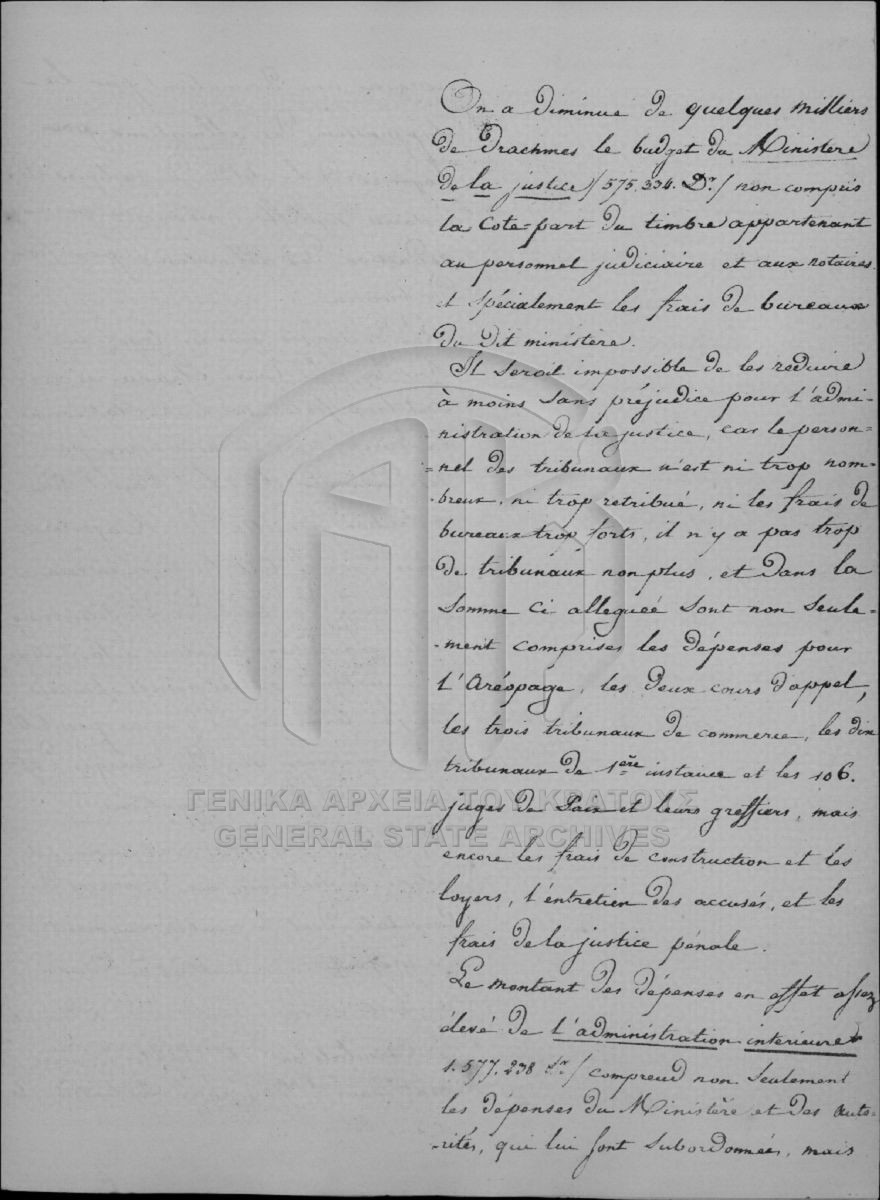 On a diminué de quelques milliers
de Drachmes le budget du Ministère
de la justice / 575.334. Dr. / non compris
la Cote=part du timbre appartenant
au personnel judiciaire et aux notaires.
et spécialement les frais de bureaux
du dit ministère.
Il seroit impossible de les reduire
à moins sans préjudice pour l'admi-
nistration de la justice, car le person-
=nel des tribunaux n'est ni trop nom-
-breux, ni trop retribué, ni les frais de
bureaux trop forts, il n'y a pas trop
de tribunaux non plus, et dans la
somme ci alleguée sont non seule-
-ment comprises les dépenses pour
l'Aréopage, les deux cours d'appel,
les trois tribunaux de commerce, les dix
tribunaux de 1ère instance et les 106.
juges de Paix et leurs greffiers, mais
ΓΕΝΙΚΑ ΑΡΧΕΙΑ ΤΟΥ ΚΡΑΤΟΥΣ
GENERAL STATE ARCHIVES
encore les frais de construction et les
loyers, l'entretien des accusés, et les
frais de la justice pénale.
Le montant des dépenses en effet assez
élevé de l'administration interieure
1.577.238 Dr. / comprend non seulement
les dépenses du Ministère et des auto-
-rités, qui lui sont subordonnées, mais